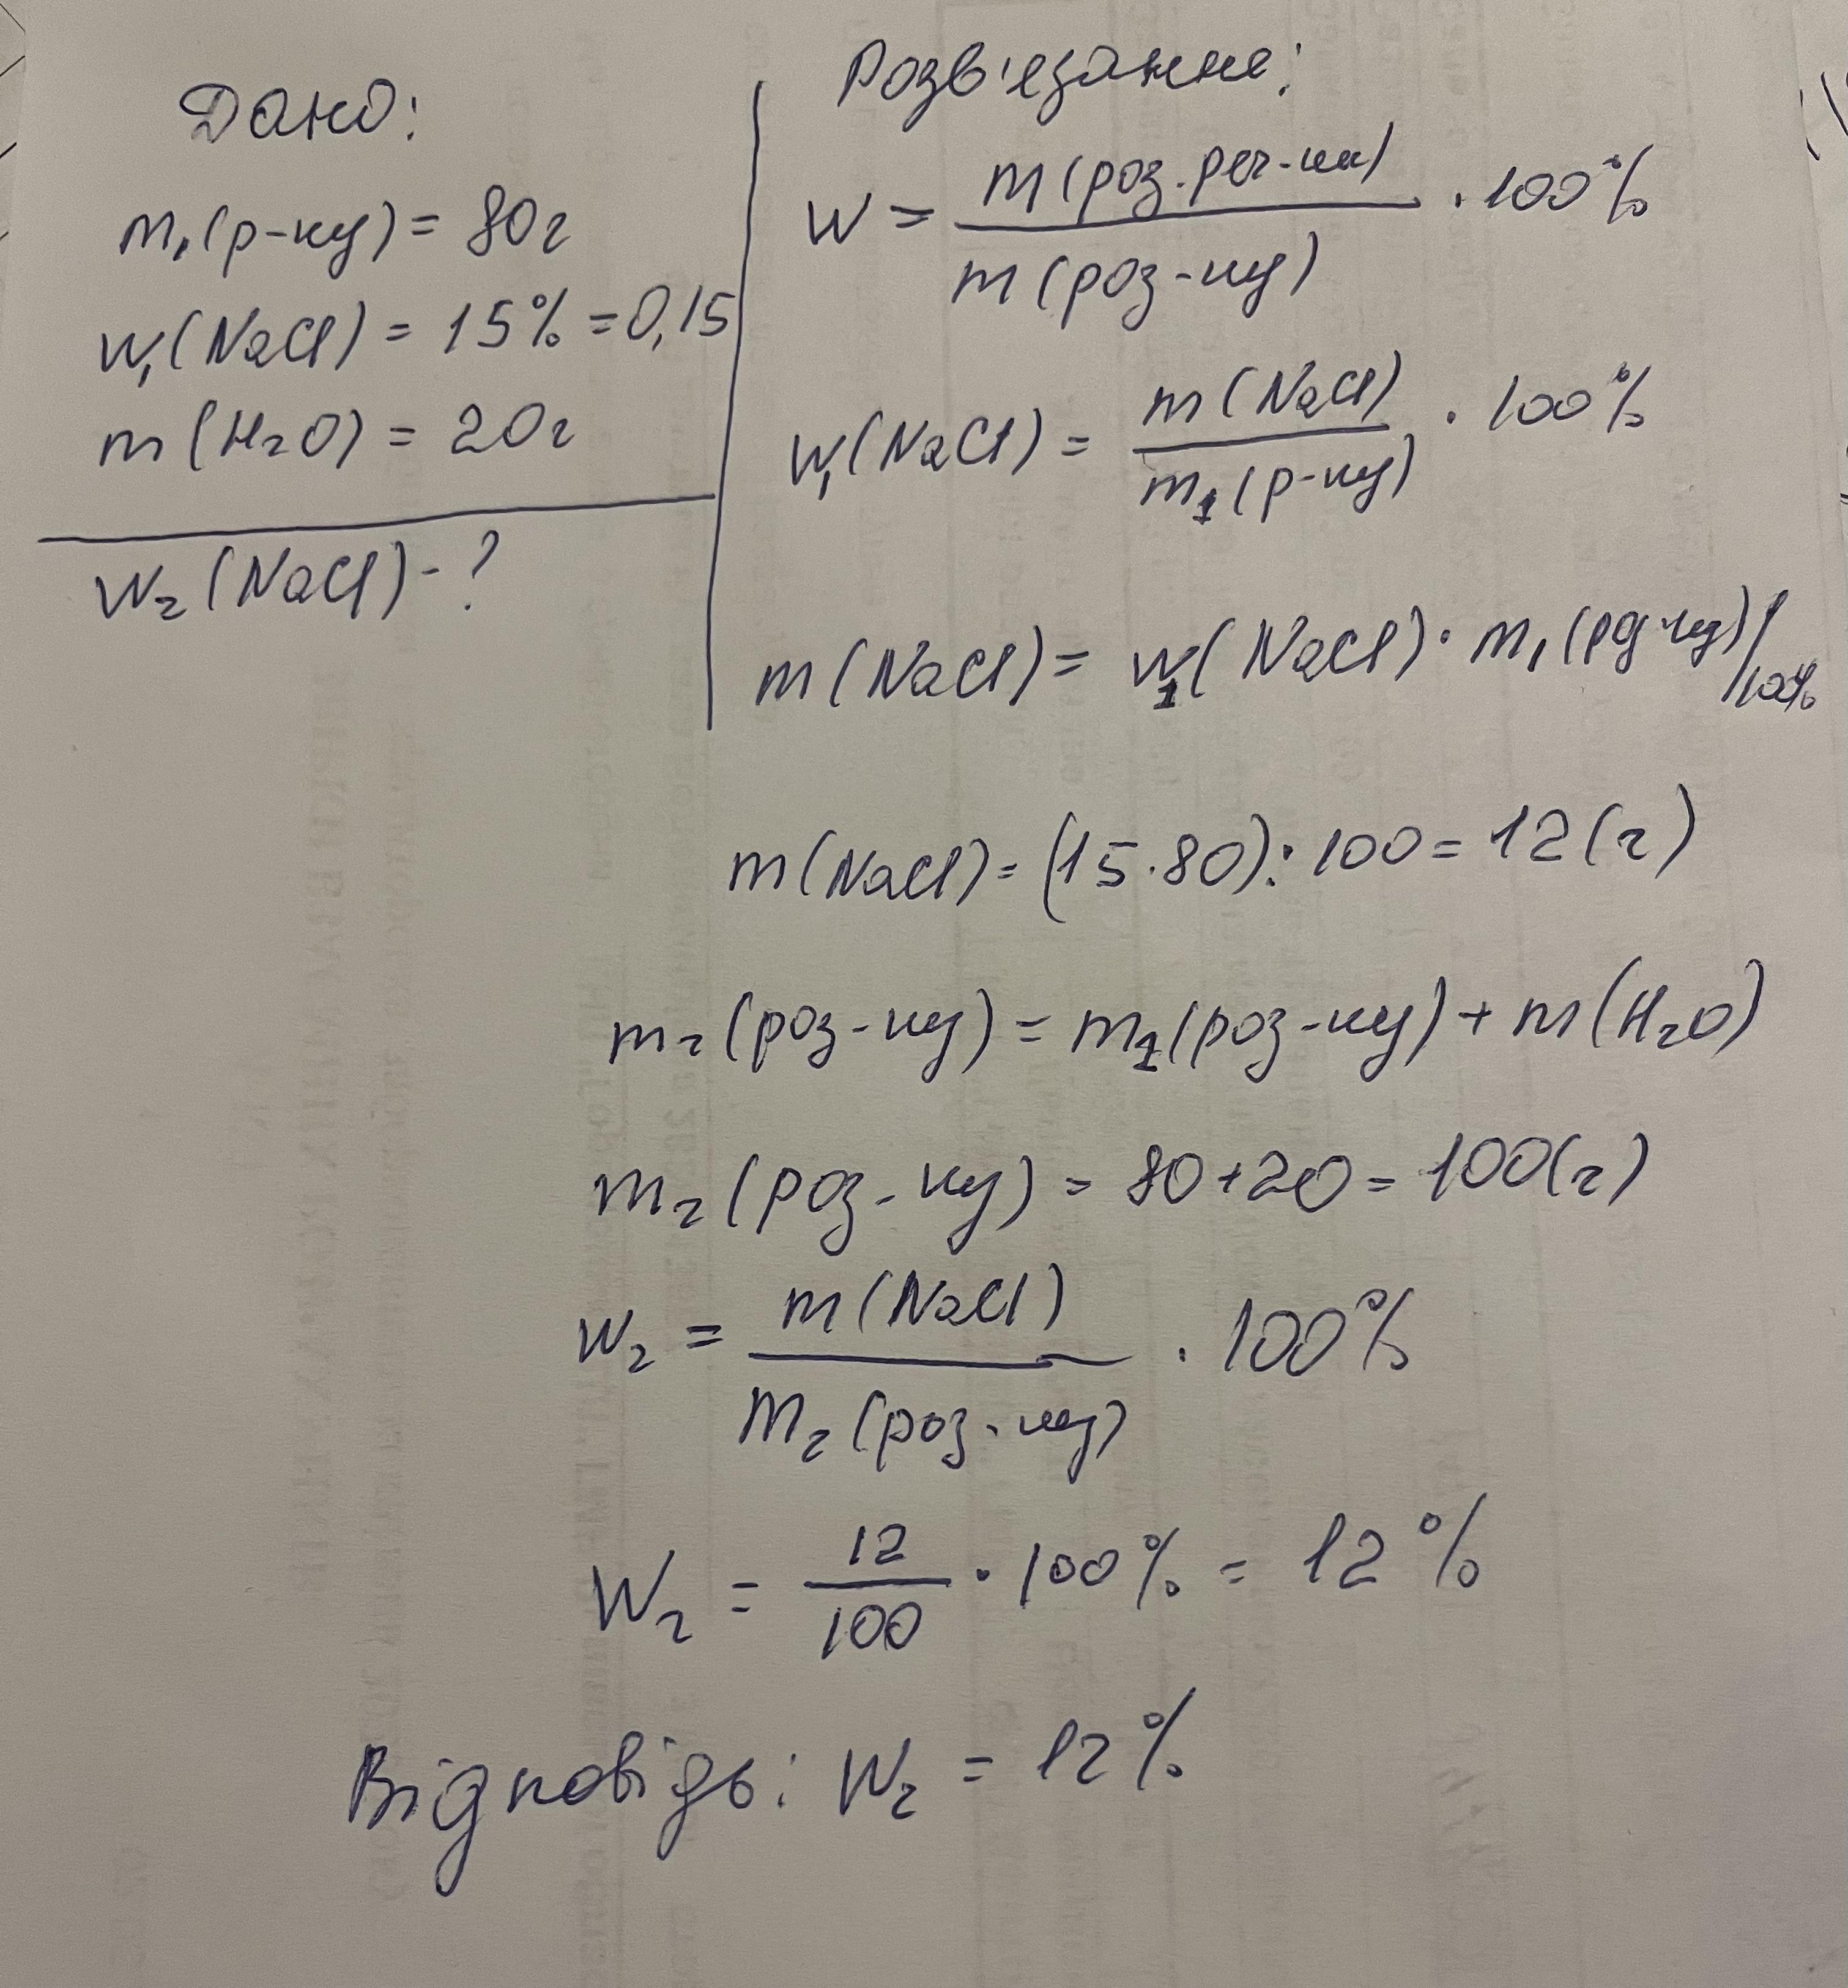 Дано:
m₁(р-ку) = 80г
w₁(NaCl) = 15% = 0,15
m(H₂O) = 20г
w₂(NaCl) - ?
Розв'язання:
w = m(роз. реч-ни) / m(роз-ку) · 100%
w₁(NaCl) = m(NaCl) / m₁(р-ку) · 100%
m(NaCl) = w₁(NaCl) · m₁(роз-ку)/100%
m(NaCl) = (15·80):100 = 12(г)
m₂(роз-ку) = m₁(роз-ку) + m(H₂O)
m₂(роз-ку) = 80+20 = 100(г)
w₂ = m(NaCl) / m₂(роз-ку) · 100%
w₂ = 12 / 100 · 100% = 12%
Відповідь: w₂ = 12%